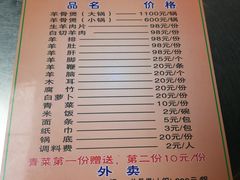 品名 价格
羊骨煲(大锅) 1100元/锅
羊骨煲(小锅) 600元/锅
生羊肉片 98元/份
白切羊肉 98元/份
羊肚 98元/份
羊肝 98元/份
羊脚 25元/个
羊鞭 20元/条
羊脑 20元/条
木耳 20元/份
腐竹 20元/份
白萝卜 20元/份
青菜 10元/份
米饭 2元/碗
面条 5元/包
纸巾 3元/包
锅底 30元/份
调料费 2元/人
青菜第一份赠送、第二份10元/份
外卖